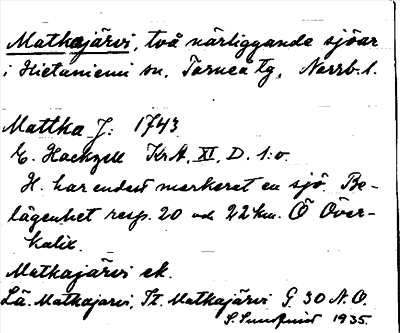 Matkajärvi, två närliggande sjöar
i Hietaniemi sn, Torneå tg, Norrb. l.
Mattka J: 1743
E. Hackzell KrA, XI, D. 1:o.
H. har endast markerat en sjö. Be-
lägenhet resp. 20 och 22 km. Ö Över-
kalix.
Matkajärvi ek.
Lä. Matkajärvi, St. Matkajärvi G. 30 N.O.
S. Sundquist 1935.